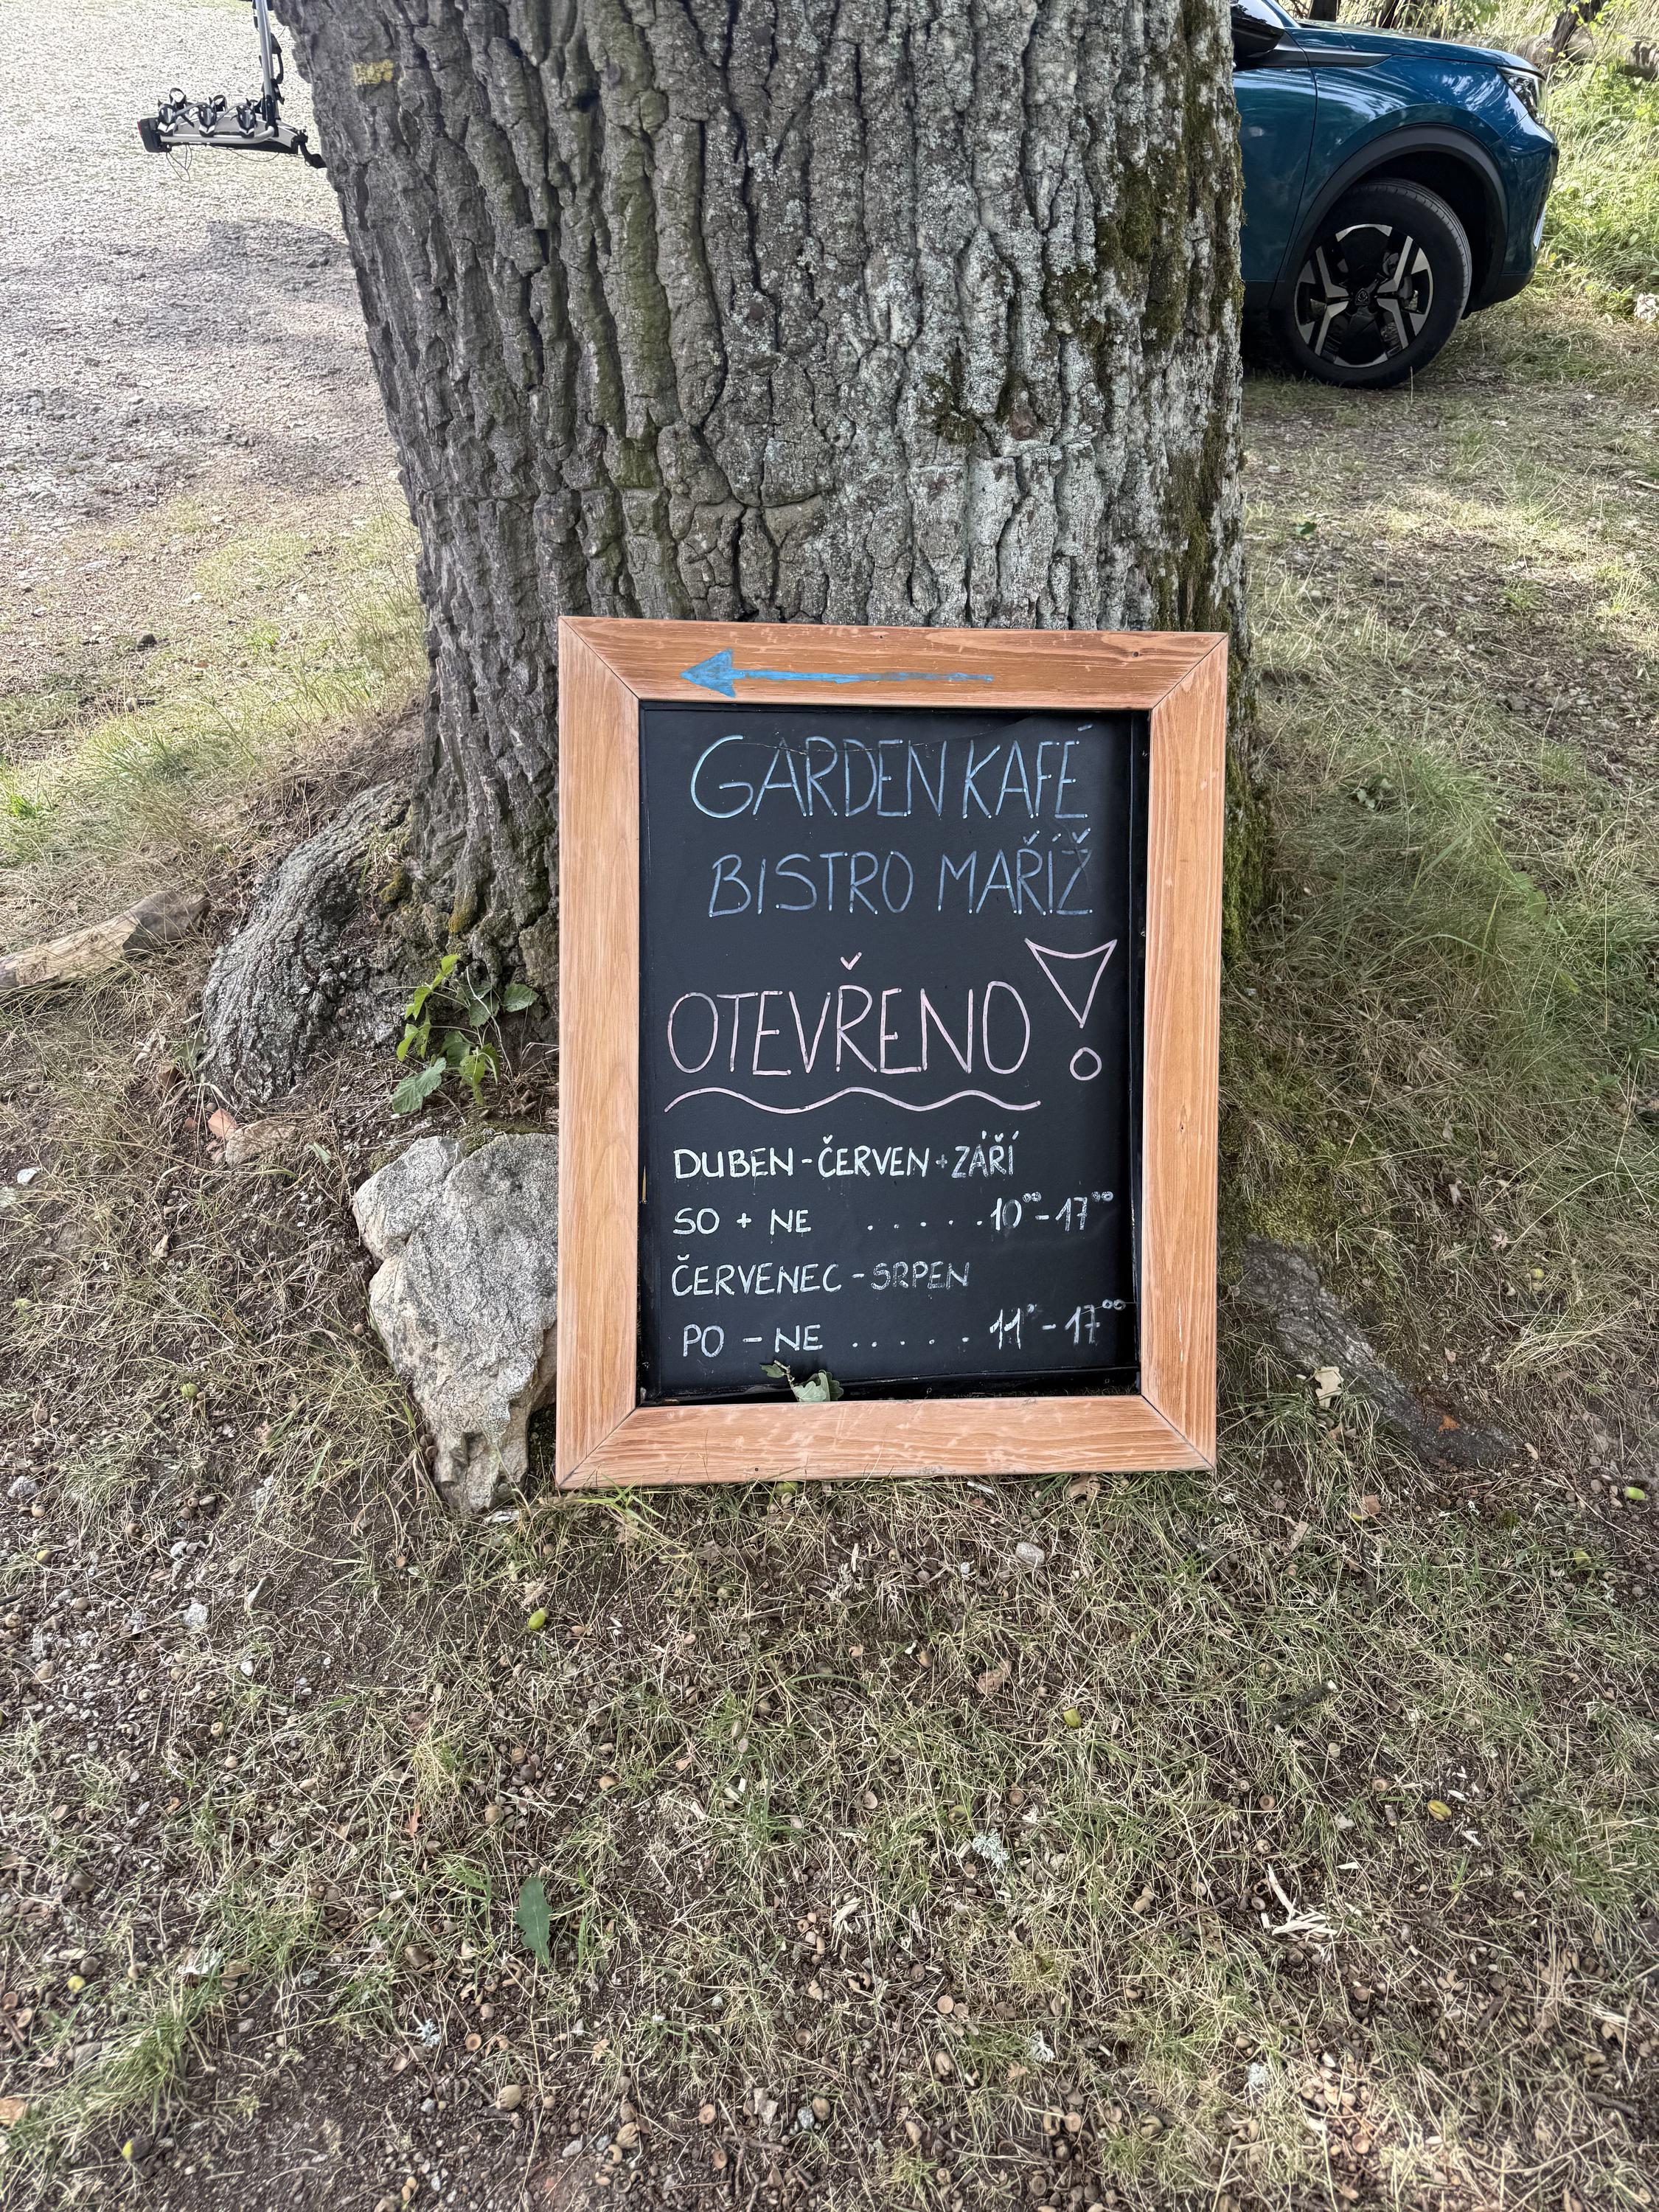 GARDEN KAFÉ
BISTRO MAŘÍŽ
OTEVŘENO!
DUBEN - ČERVEN + ZÁŘÍ
SO + NE ......10⁰⁰ - 17⁰⁰
ČERVENEC - SRPEN
PO - NE ..... 11⁰⁰ - 17⁰⁰